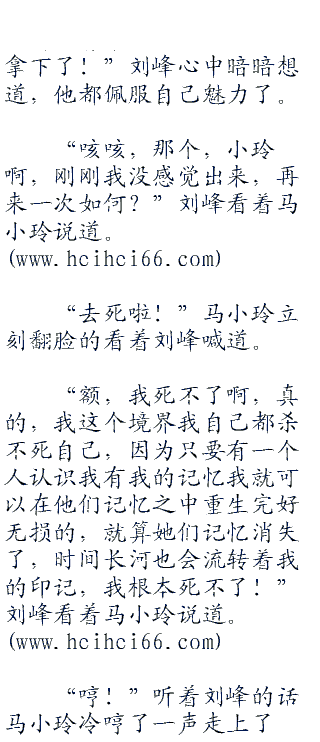 拿下了！”刘峰心中暗暗想
道，他都佩服自己魅力了。
“咳咳，那个，小玲
啊，刚刚我没感觉出来，再
来一次如何？”刘峰看着马
小玲说道。
(www.hcihci66.com)
“去死啦！”马小玲立
刻翻脸的看着刘峰喊道。
“额，我死不了啊，真
的，我这个境界我自己都杀
不死自己，因为只要有一个
人认识我有我的记忆我就可
以在他们记忆之中重生完好
无损的，就算她们记忆消失
了，时间长河也会流转着我
的印记，我根本死不了！”
刘峰看着马小玲说道。
(www.hcihci66.com)
“哼！”听着刘峰的话
马小玲冷哼了一声走上了